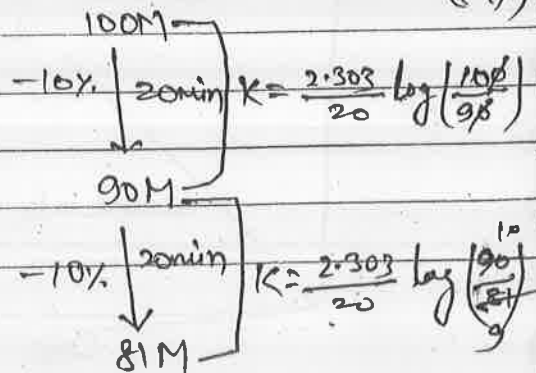 100M
-10% 20min K = 2.303/20 log(100/90)
90M
-10% 20min K = 2.303/20 log(90/81) 10 9
81M